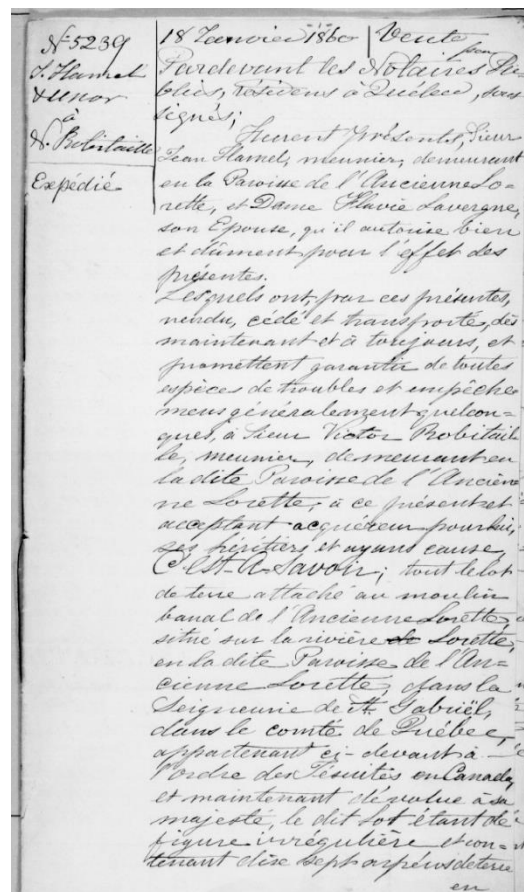 N° 5239
J. Hamel
& uxor
à
V. Robitaille
Expédié
18 Janvier 1860 Vente
Pardevant les Notaires Pu
blics, résidens à Québec, sous
signés;
Furent Présents, Sieur
Jean Hamel, meunier, demeurant
en la Paroisse de l'Ancienne Lo=
rette, et Dame Flavie Lavergne,
son Epouse, qu'il autorise bien
et dûment pour l'effet des
présentes.
Lesquels ont, par ces présentes,
vendu, cédé et transporté, dès
maintenant et à toujours, et
promettent garantir de toutes
espèces de troubles et empêche
mens généralement quelcon=
ques, à Sieur Victor Robitail
le, meunier, demeurant en
la dite Paroisse de l'Ancien
ne Lorette, à ce présent et
acceptant acquéreur pour lui,
ses héritiers et ayans cause,
C'est-A-Savoir; tout le lot
de terre attaché au moulin
banal de l'Ancienne Lorette,
situé sur la rivière de Lorette,
en la dite Paroisse de l'An=
cienne Lorette, dans la
Seigneurie de St. Gabriël,
dans le comté de Québec,
appartenant ci-devant à
l'ordre des Jésuites en Canada,
et maintenant dévolue à sa
majesté, le dit lot étant de
figure irrégulière et con=
tenant dix sept arpens de terre
en